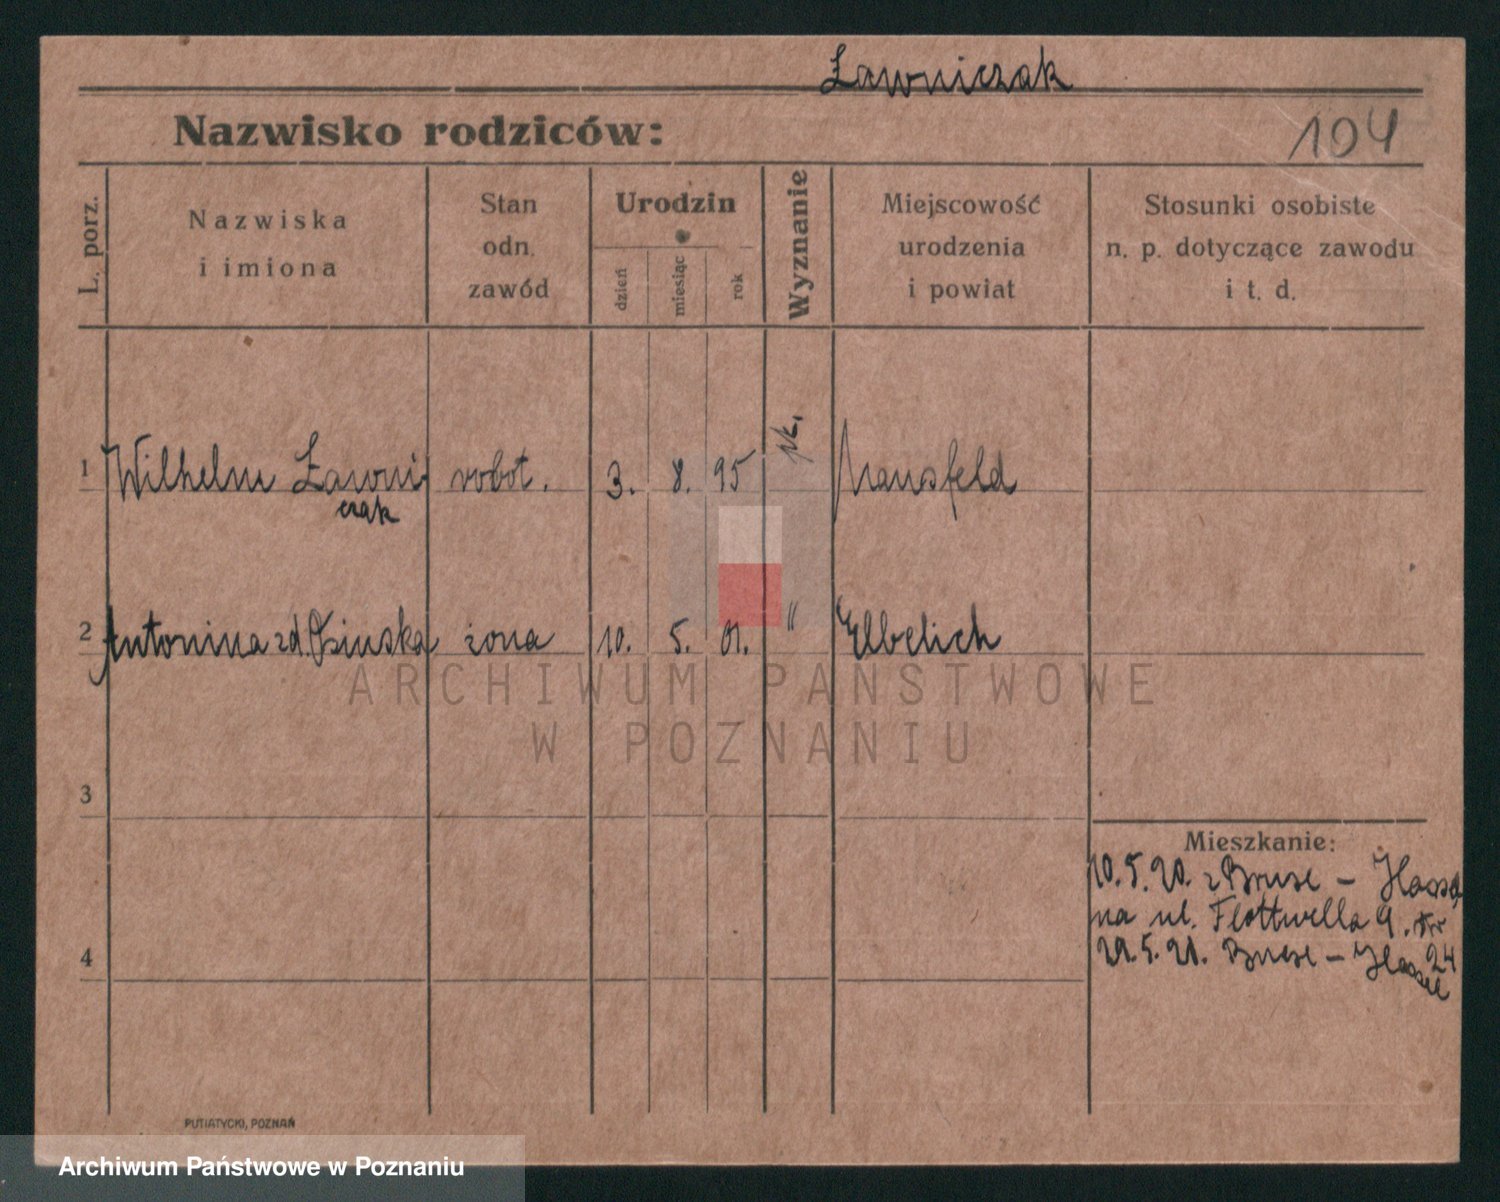 Ławniczak
Nazwisko rodziców:
104
L. porz.
Nazwiska
i imiona
Stan
odn.
zawód
Urodzin
dzień
miesiąc
rok
Wyznanie
Miejscowość
urodzenia
i powiat
Stosunki osobiste
n. p. dotyczące zawodu
i t. d.
1 Wilhelm Ławni robot. 3. 8. 95 Mansfeld
czak
2 Antonina zd. Osinska żona 10. 5. 01. "
ARCHIWUM PAŃSTWOWE
W POZNANIU
3
Mieszkanie:
10.5.20. z
na ul. Flottwella 9.
24
4
PUTIATYCKI, POZNAŃ
Archiwum Państwowe w Poznaniu